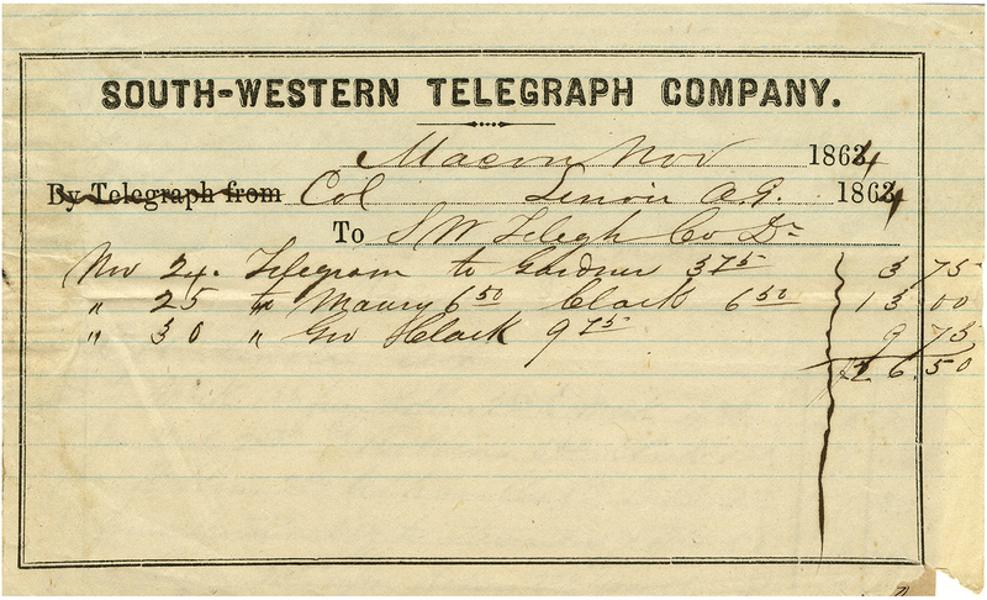 SOUTH-WESTERN TELEGRAPH COMPANY.
Macon Nov 1864
By Telegraph from Col Lenoir A.G. 1864
To S W Telegh Co Dr
Nov 24. Telegram to Gardner 3 75 3 75
" 25 to Maury 6 50 Clark 6 50 13 00
" 30 " Clark 9 75 9 75
26.50